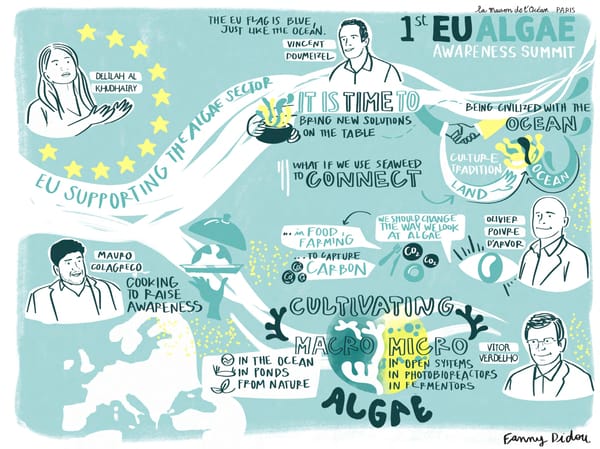 la maison de l'Océan PARIS
1st EU ALGAE
AWARENESS SUMMIT
THE EU FLAG IS BLUE,
JUST LIKE THE OCEAN.
VINCENT
DOUMEIZEL
DELILAH AL
KHUDHAIRY
EU SUPPORTING THE ALGAE SECTOR
IT IS TIME TO
BRING NEW SOLUTIONS
ON THE TABLE
BEING CIVILIZED WITH THE
OCEAN
CULTURE
TRADITION
LAND
OCEAN
WHAT IF WE USE SEAWEED
TO CONNECT
... in FOOD
FARMING
... TO CAPTURE
CARBON
WE SHOULD CHANGE
THE WAY WE LOOK
AT ALGAE
CO2
CO2
OLIVIER
POIVRE
D'ARVOR
MAURO
COLAGRECO
COOKING
TO RAISE
AWARENESS
CULTIVATING
MACRO MICRO
IN THE OCEAN
IN PONDS
FROM NATURE
IN OPEN SYSTEMS
IN PHOTOBIOREACTORS
IN FERMENTORS
ALGAE
VITOR
VERDELHO
Fanny Didou